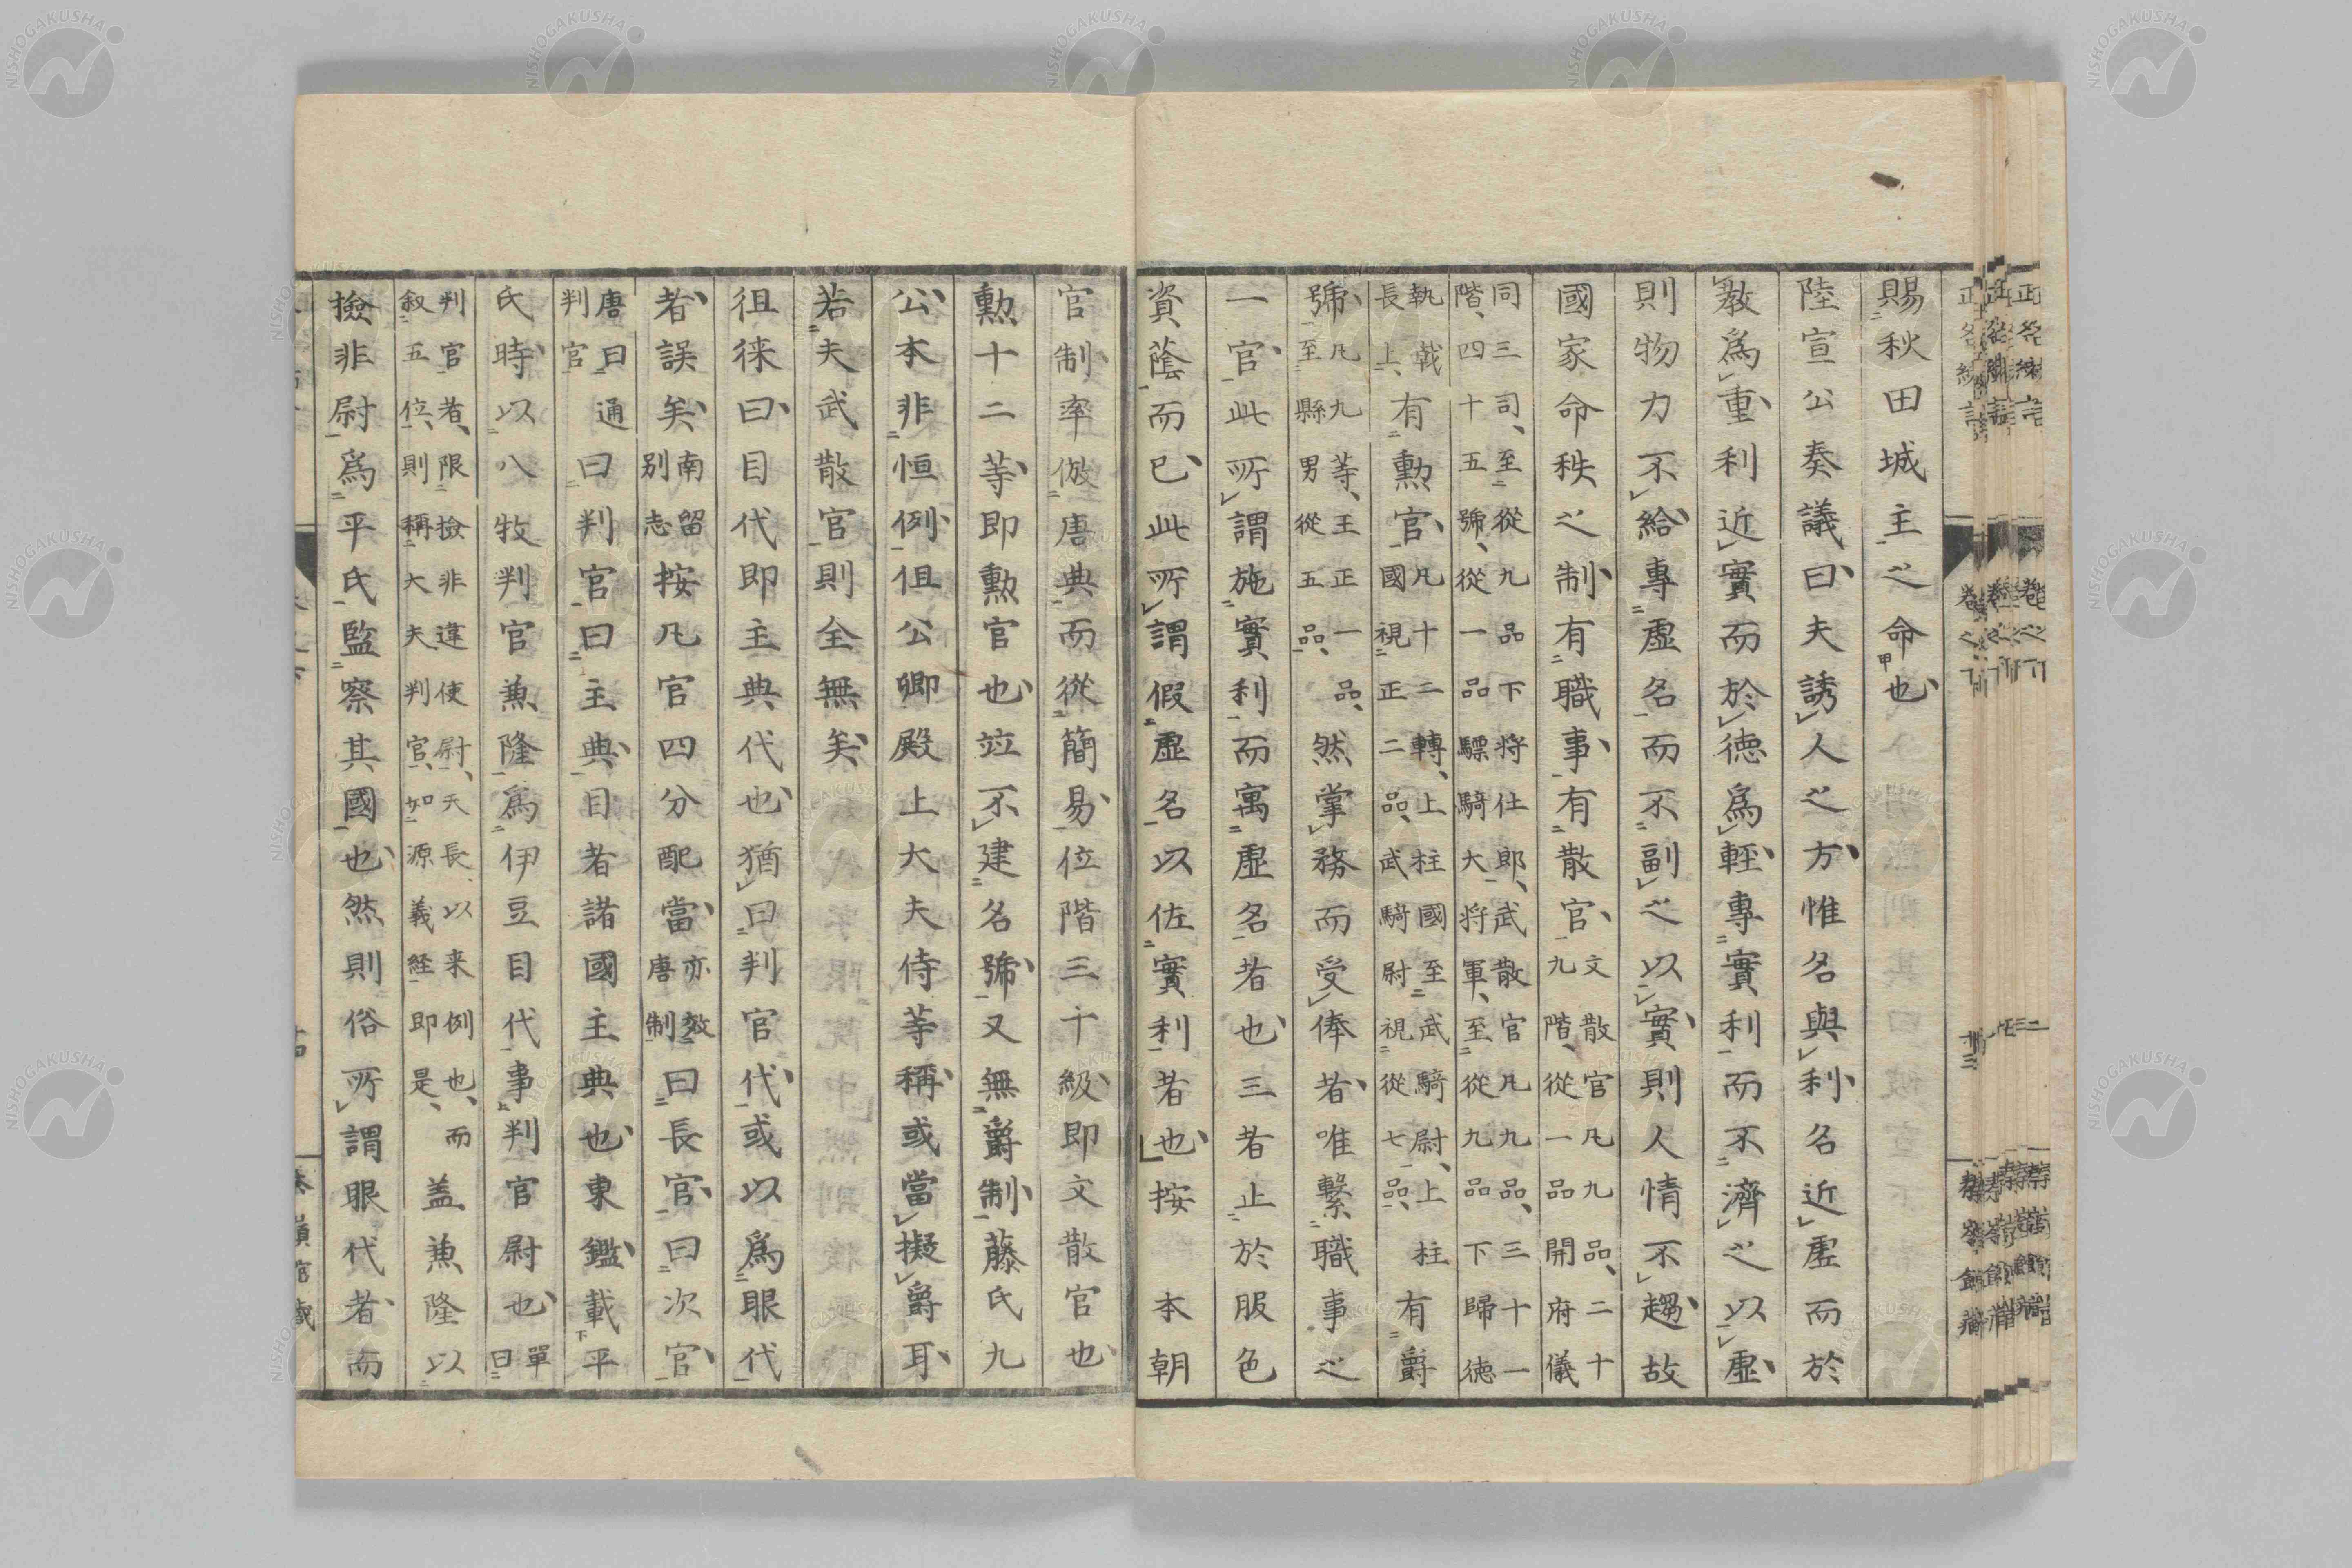 賜秋田城主之命也
陸宣公奏議曰夫誘人之方惟名與利名近虛而於
敎爲重利近實而於德爲輕專實利而不濟之以虛
則物力不給專虛名而不副之以實則人情不趨故
國家命秩之制有職事有散官文散官凡九品二十九階從一品開府儀
同三司至從九品下將仕郎武散官凡九品三十一階四十五號從一品驃騎大將軍至從九品下歸德
執戟長上有勳官凡十二轉上柱國視正二品至武騎尉視從七品上柱國武騎尉有爵
號凡九等王正一品至縣男從五品然掌務而受俸者唯繫職事之
一官此所謂施實利而寓虛名者也三者止於服色
資蔭而已此所謂假虛名以佐實利者也按 本朝
官制率倣唐典而從簡易位階三十級即文散官也
勳十二等即勳官也竝不建名號又無爵制藤氏九
公本非恒例但公卿殿上大夫侍等稱或當擬爵耳
若夫武散官則全無矣
徂徠曰目代即主典代也猶曰判官代或以爲眼代
者誤矣南留別志按凡官四分配當亦效唐制曰長官曰次官
唐曰通判官曰判官曰主典目者諸國主典也東鑑載平
氏時以八牧判官兼隆爲伊豆目代事判官尉也單曰
判官者限撿非違使尉天長以來例也而叙五位則稱大夫判官如源義經即是盖兼隆以
撿非尉爲平氏監察其國也然則俗所謂眼代者而